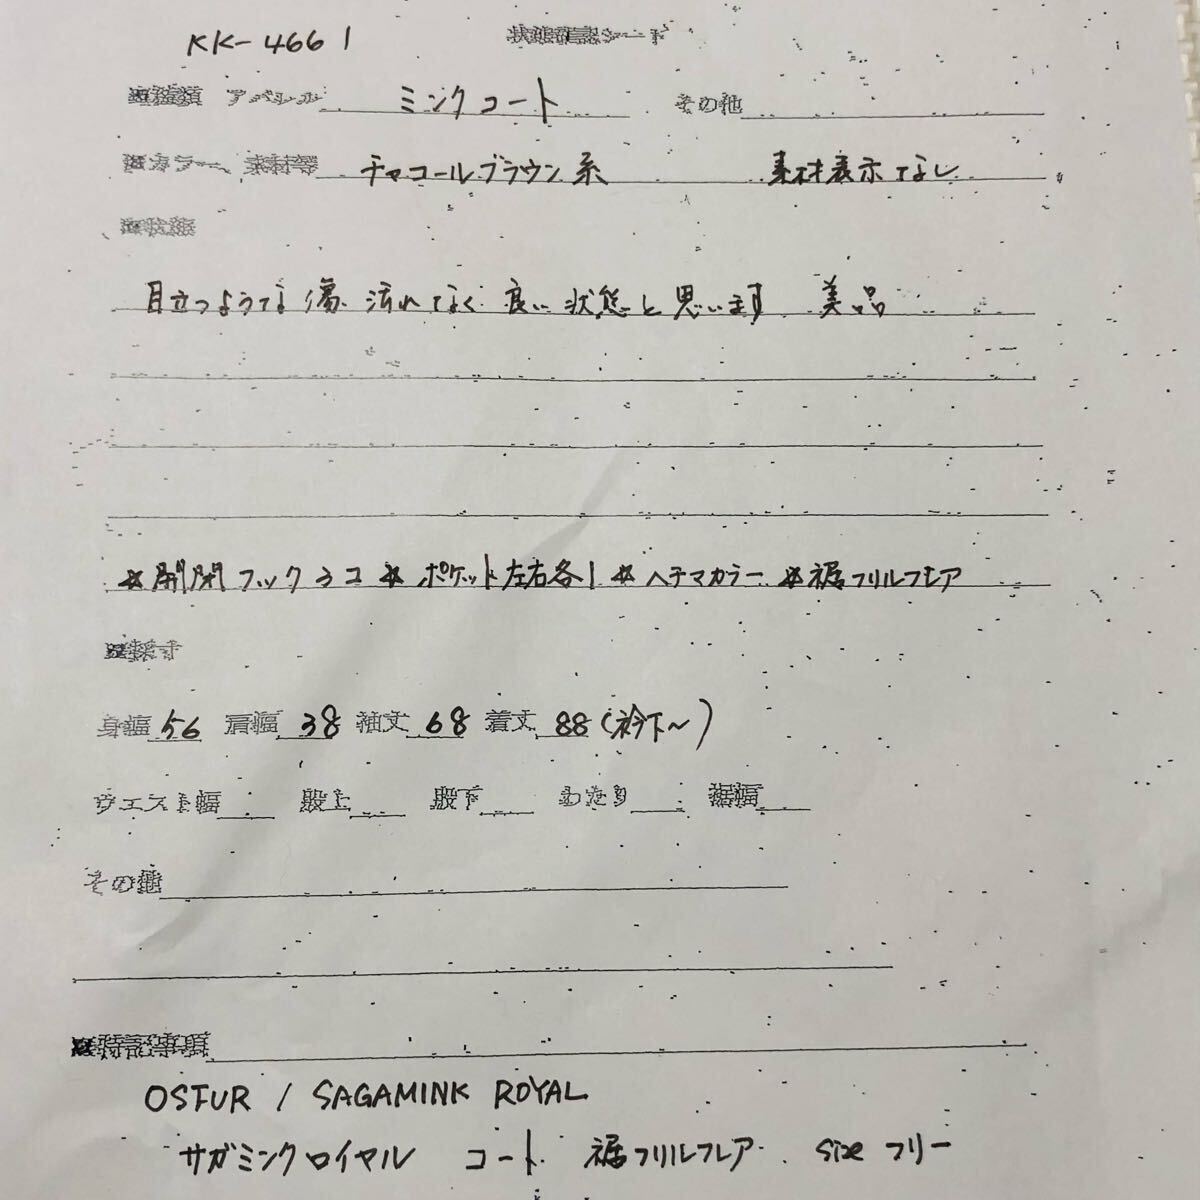 KK-4661 状態確認シート
■種類 アパレル ミンクコート その他
■カラー、素材等 チャコールブラウン系 素材表示なし
■状態
目立つような傷、汚れなく 良い状態と思います 美品
☆開閉フック3コ ☆ポケット左右各1 ☆ヘチマカラー ☆裾フリルフレア
■採寸
身幅 56 肩幅 38 袖丈 68 着丈 88(衿下~)
ウエスト幅 股上 股下 わたり 裾幅
その他
■特記事項
OSFUR / SAGAMINK ROYAL
サガミンクロイヤル コート 裾フリルフレア size フリー